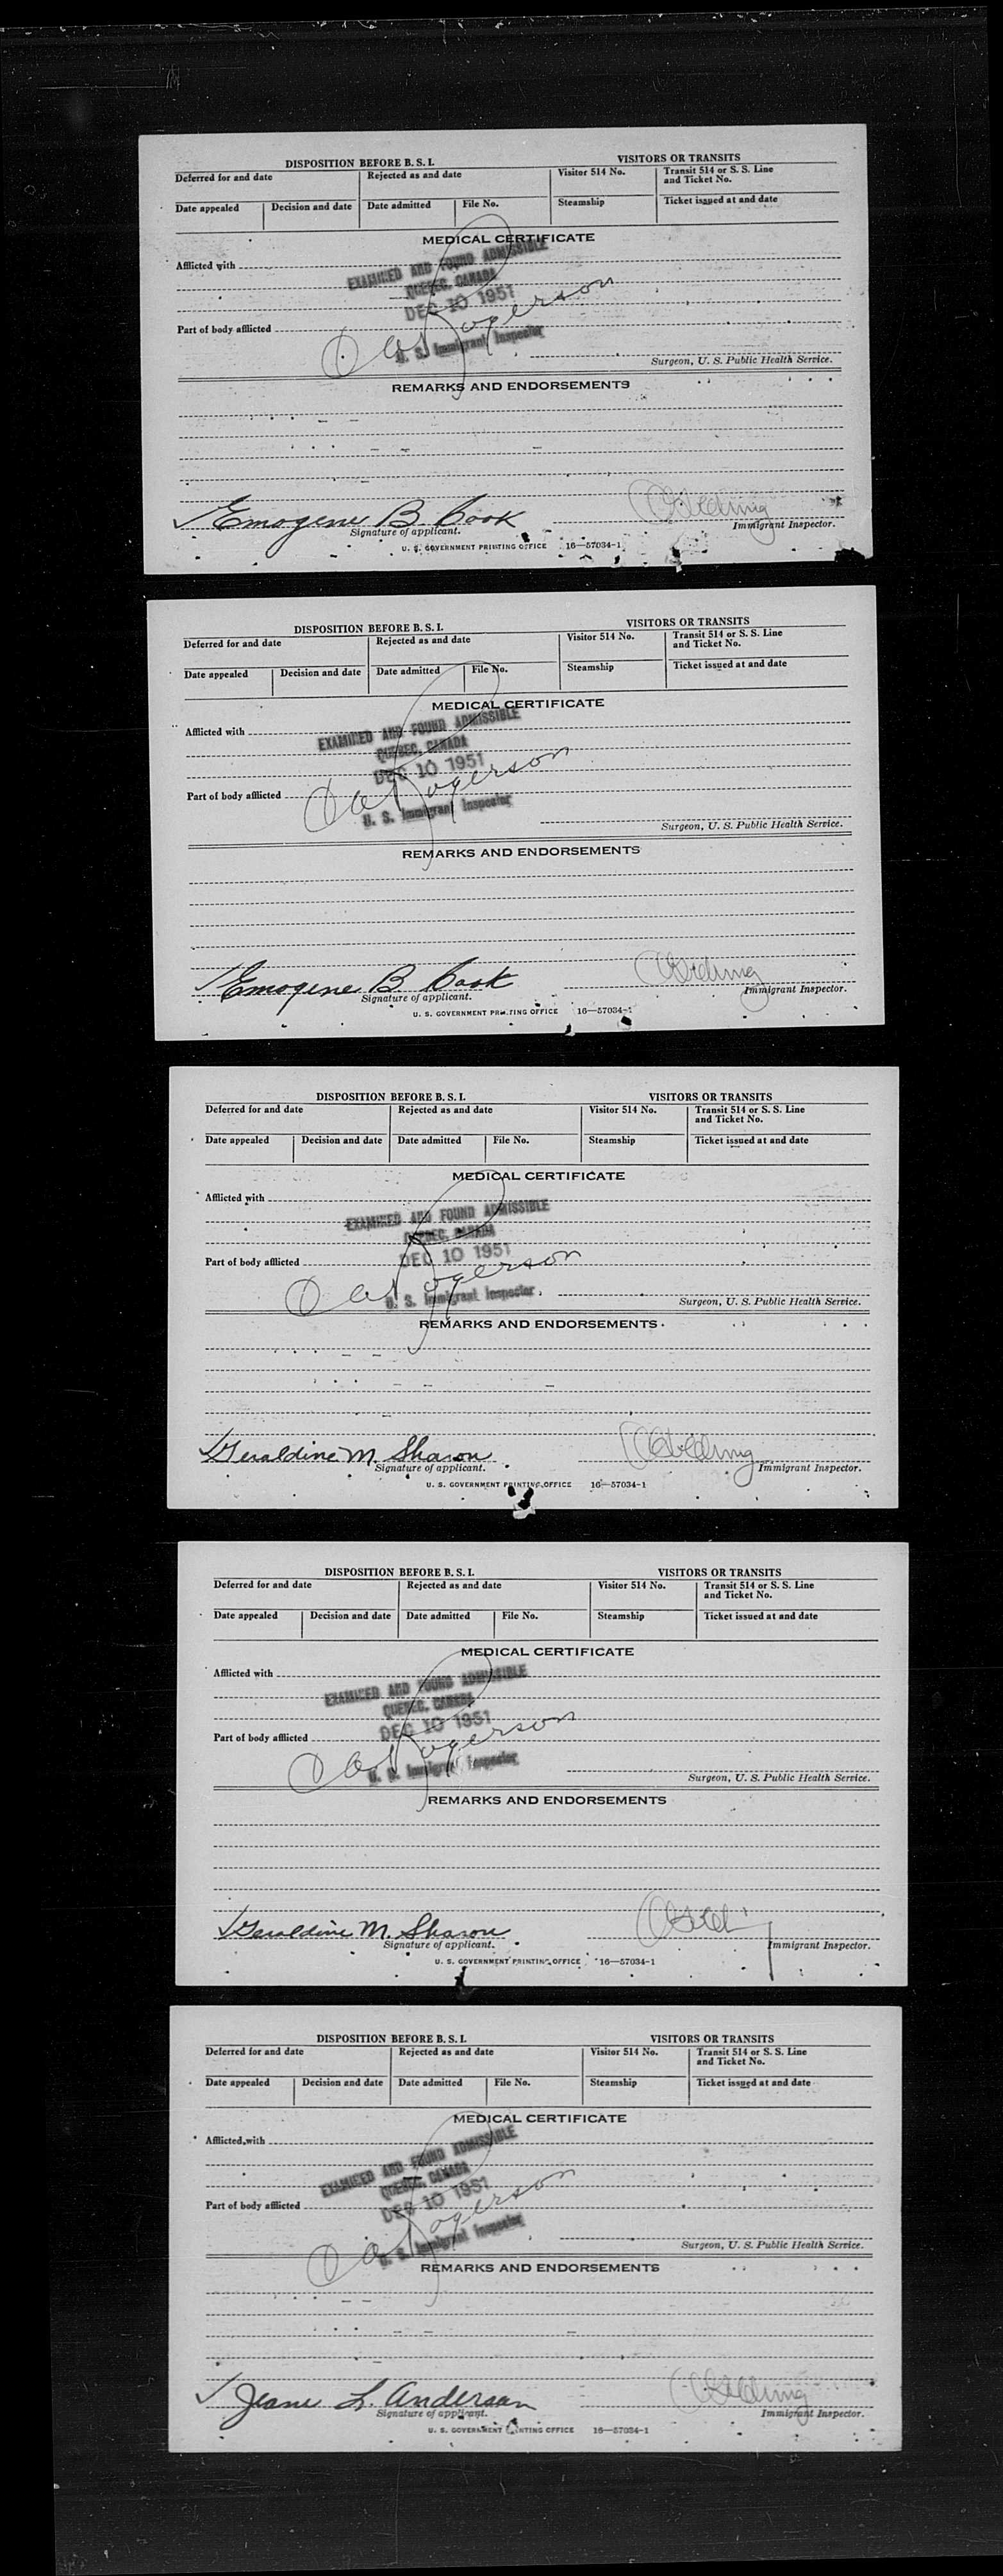 DISPOSITION BEFORE B. S. I. VISITORS OR TRANSITS
Deferred for and date Rejected as and date Visitor 514 No. Transit 514 or S. S. Line and Ticket No.
Date appealed Decision and date Date admitted File No. Steamship Ticket issued at and date
MEDICAL CERTIFICATE
Afflicted with
EXAMINED AND FOUND ADMISSIBLE
QUEBEC, CANADA
DEC 10 1951
Part of body afflicted
Rogerson
U. S. Immigrant Inspector
Surgeon, U. S. Public Health Service.
REMARKS AND ENDORSEMENTS
Emogene B. Cook
Signature of applicant. Immigrant Inspector.
U. S. GOVERNMENT PRINTING OFFICE 16—57034-1
DISPOSITION BEFORE B. S. I. VISITORS OR TRANSITS
Deferred for and date Rejected as and date Visitor 514 No. Transit 514 or S. S. Line and Ticket No.
Date appealed Decision and date Date admitted File No. Steamship Ticket issued at and date
MEDICAL CERTIFICATE
Afflicted with
EXAMINED AND FOUND ADMISSIBLE
QUEBEC, CANADA
DEC 10 1951
Part of body afflicted
Rogerson
U. S. Immigrant Inspector
Surgeon, U. S. Public Health Service.
REMARKS AND ENDORSEMENTS
Emogene B Cook
Signature of applicant. Immigrant Inspector.
U. S. GOVERNMENT PRINTING OFFICE 16—57034-1
DISPOSITION BEFORE B. S. I. VISITORS OR TRANSITS
Deferred for and date Rejected as and date Visitor 514 No. Transit 514 or S. S. Line and Ticket No.
Date appealed Decision and date Date admitted File No. Steamship Ticket issued at and date
MEDICAL CERTIFICATE
Afflicted with
EXAMINED AND FOUND ADMISSIBLE
QUEBEC, CANADA
DEC 10 1951
Part of body afflicted
Rogerson
U. S. Immigrant Inspector
Surgeon, U. S. Public Health Service.
REMARKS AND ENDORSEMENTS
Geraldine M. Sharon
Signature of applicant. Immigrant Inspector.
U. S. GOVERNMENT PRINTING OFFICE 16—57034-1
DISPOSITION BEFORE B. S. I. VISITORS OR TRANSITS
Deferred for and date Rejected as and date Visitor 514 No. Transit 514 or S. S. Line and Ticket No.
Date appealed Decision and date Date admitted File No. Steamship Ticket issued at and date
MEDICAL CERTIFICATE
Afflicted with
EXAMINED AND FOUND ADMISSIBLE
QUEBEC, CANADA
DEC 10 1951
Part of body afflicted
Rogerson
U. S. Immigrant Inspector
Surgeon, U. S. Public Health Service.
REMARKS AND ENDORSEMENTS
Geraldine M. Sharon
Signature of applicant. Immigrant Inspector.
U. S. GOVERNMENT PRINTING OFFICE 16—57034-1
DISPOSITION BEFORE B. S. I. VISITORS OR TRANSITS
Deferred for and date Rejected as and date Visitor 514 No. Transit 514 or S. S. Line and Ticket No.
Date appealed Decision and date Date admitted File No. Steamship Ticket issued at and date
MEDICAL CERTIFICATE
Afflicted with
EXAMINED AND FOUND ADMISSIBLE
QUEBEC, CANADA
DEC 10 1951
Part of body afflicted
Rogerson
U. S. Immigrant Inspector
Surgeon, U. S. Public Health Service.
REMARKS AND ENDORSEMENTS
Jeane L. Anderson
Signature of applicant. Immigrant Inspector.
U. S. GOVERNMENT PRINTING OFFICE 16—57034-1